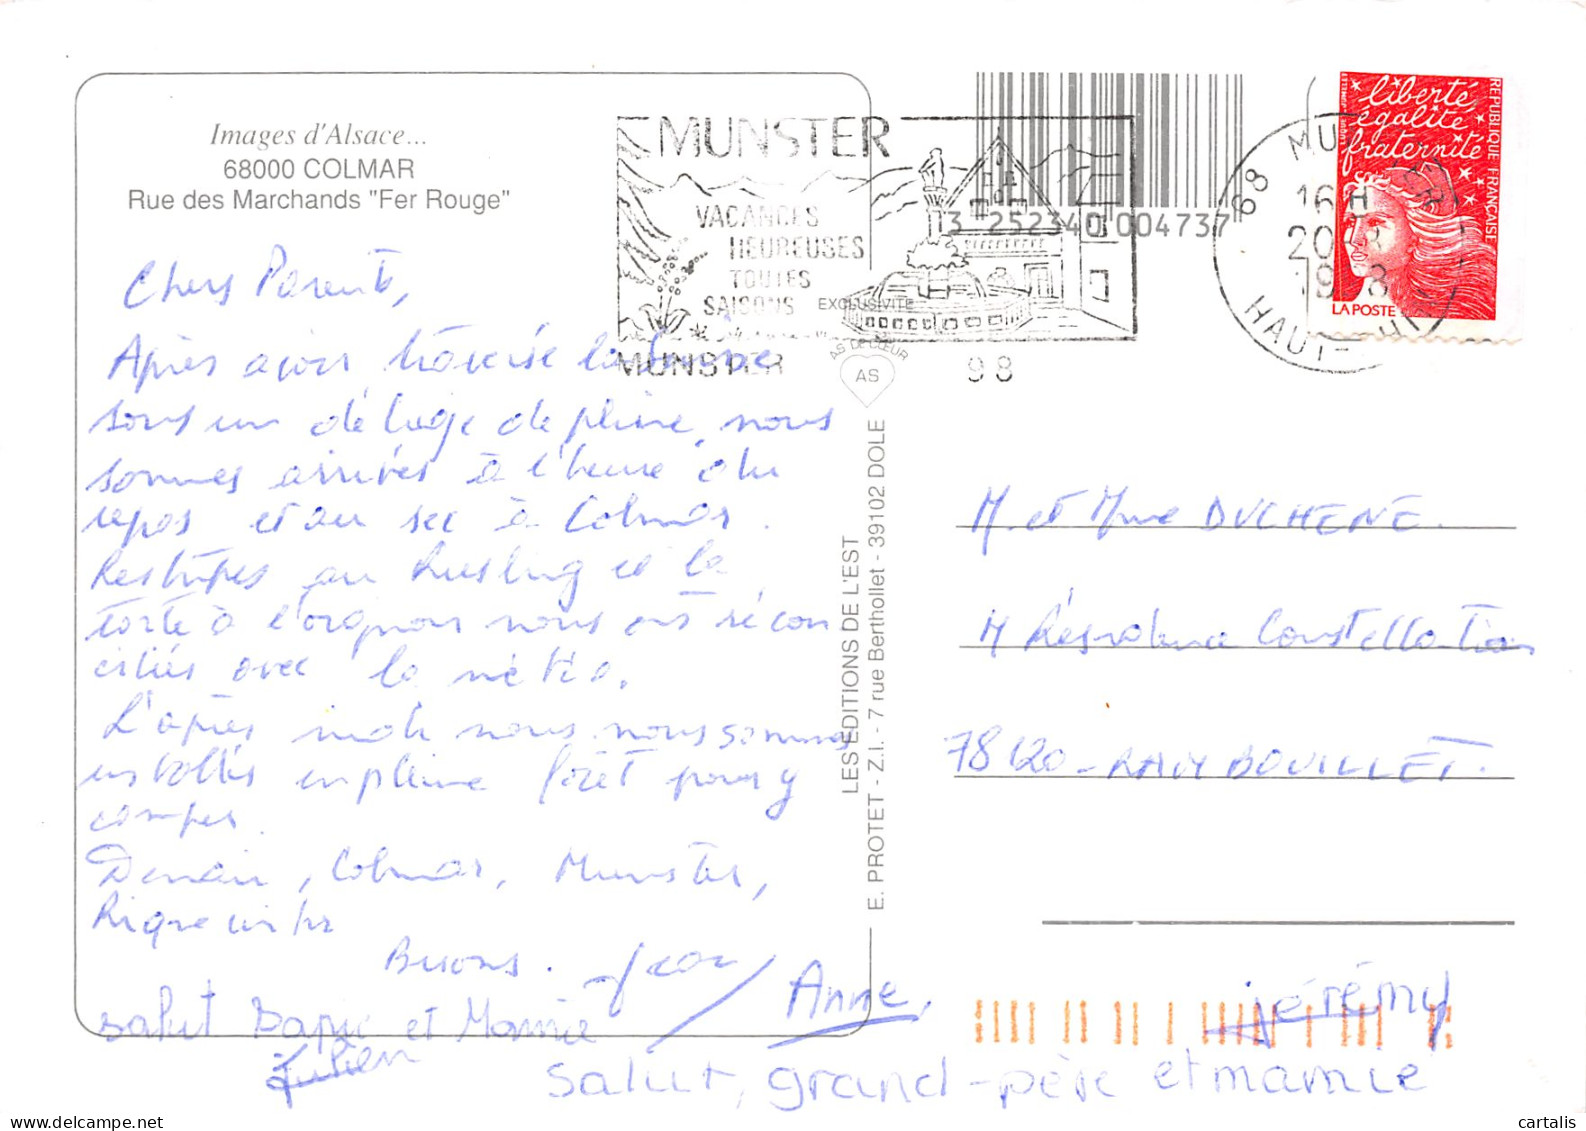 Images d'Alsace...
68000 COLMAR
Rue des Marchands "Fer Rouge"
Chers Parents,
Après avoir traversé la
sous un déluge de pluie, nous
sommes arrivés à l'heure du
repos et au sec à Colmar.
au Riesling et la
tarte à l'oignon nous ont récon
ciliés avec la météo.
L'après midi nous nous sommes
installés en pleine forêt pour y
camper.
Demain, Colmar, Munster,
Riquewihr
Bisous. Jean
Anne,
Jérémy
salut Papie et Mamie
Julien
Salut, grand-père et mamie
MUNSTER
VACANCES
HEUREUSES
TOUTES
SAISONS
MUNSTER
98
3 252340 004737
EXCLUSIVITÉ
AS DE CŒUR
AS
LES EDITIONS DE L'EST
E. PROTET - Z.I. - 7 rue Berthollet - 39102 DOLE
liberté
égalité
fraternité
REPUBLIQUE FRANÇAISE
LA POSTE
68 MUNSTER
16H
1998
HAUT-RHIN
M. et Mme DUCHENE.
Constellation
78120 - RAMBOUILLET.
cartalis